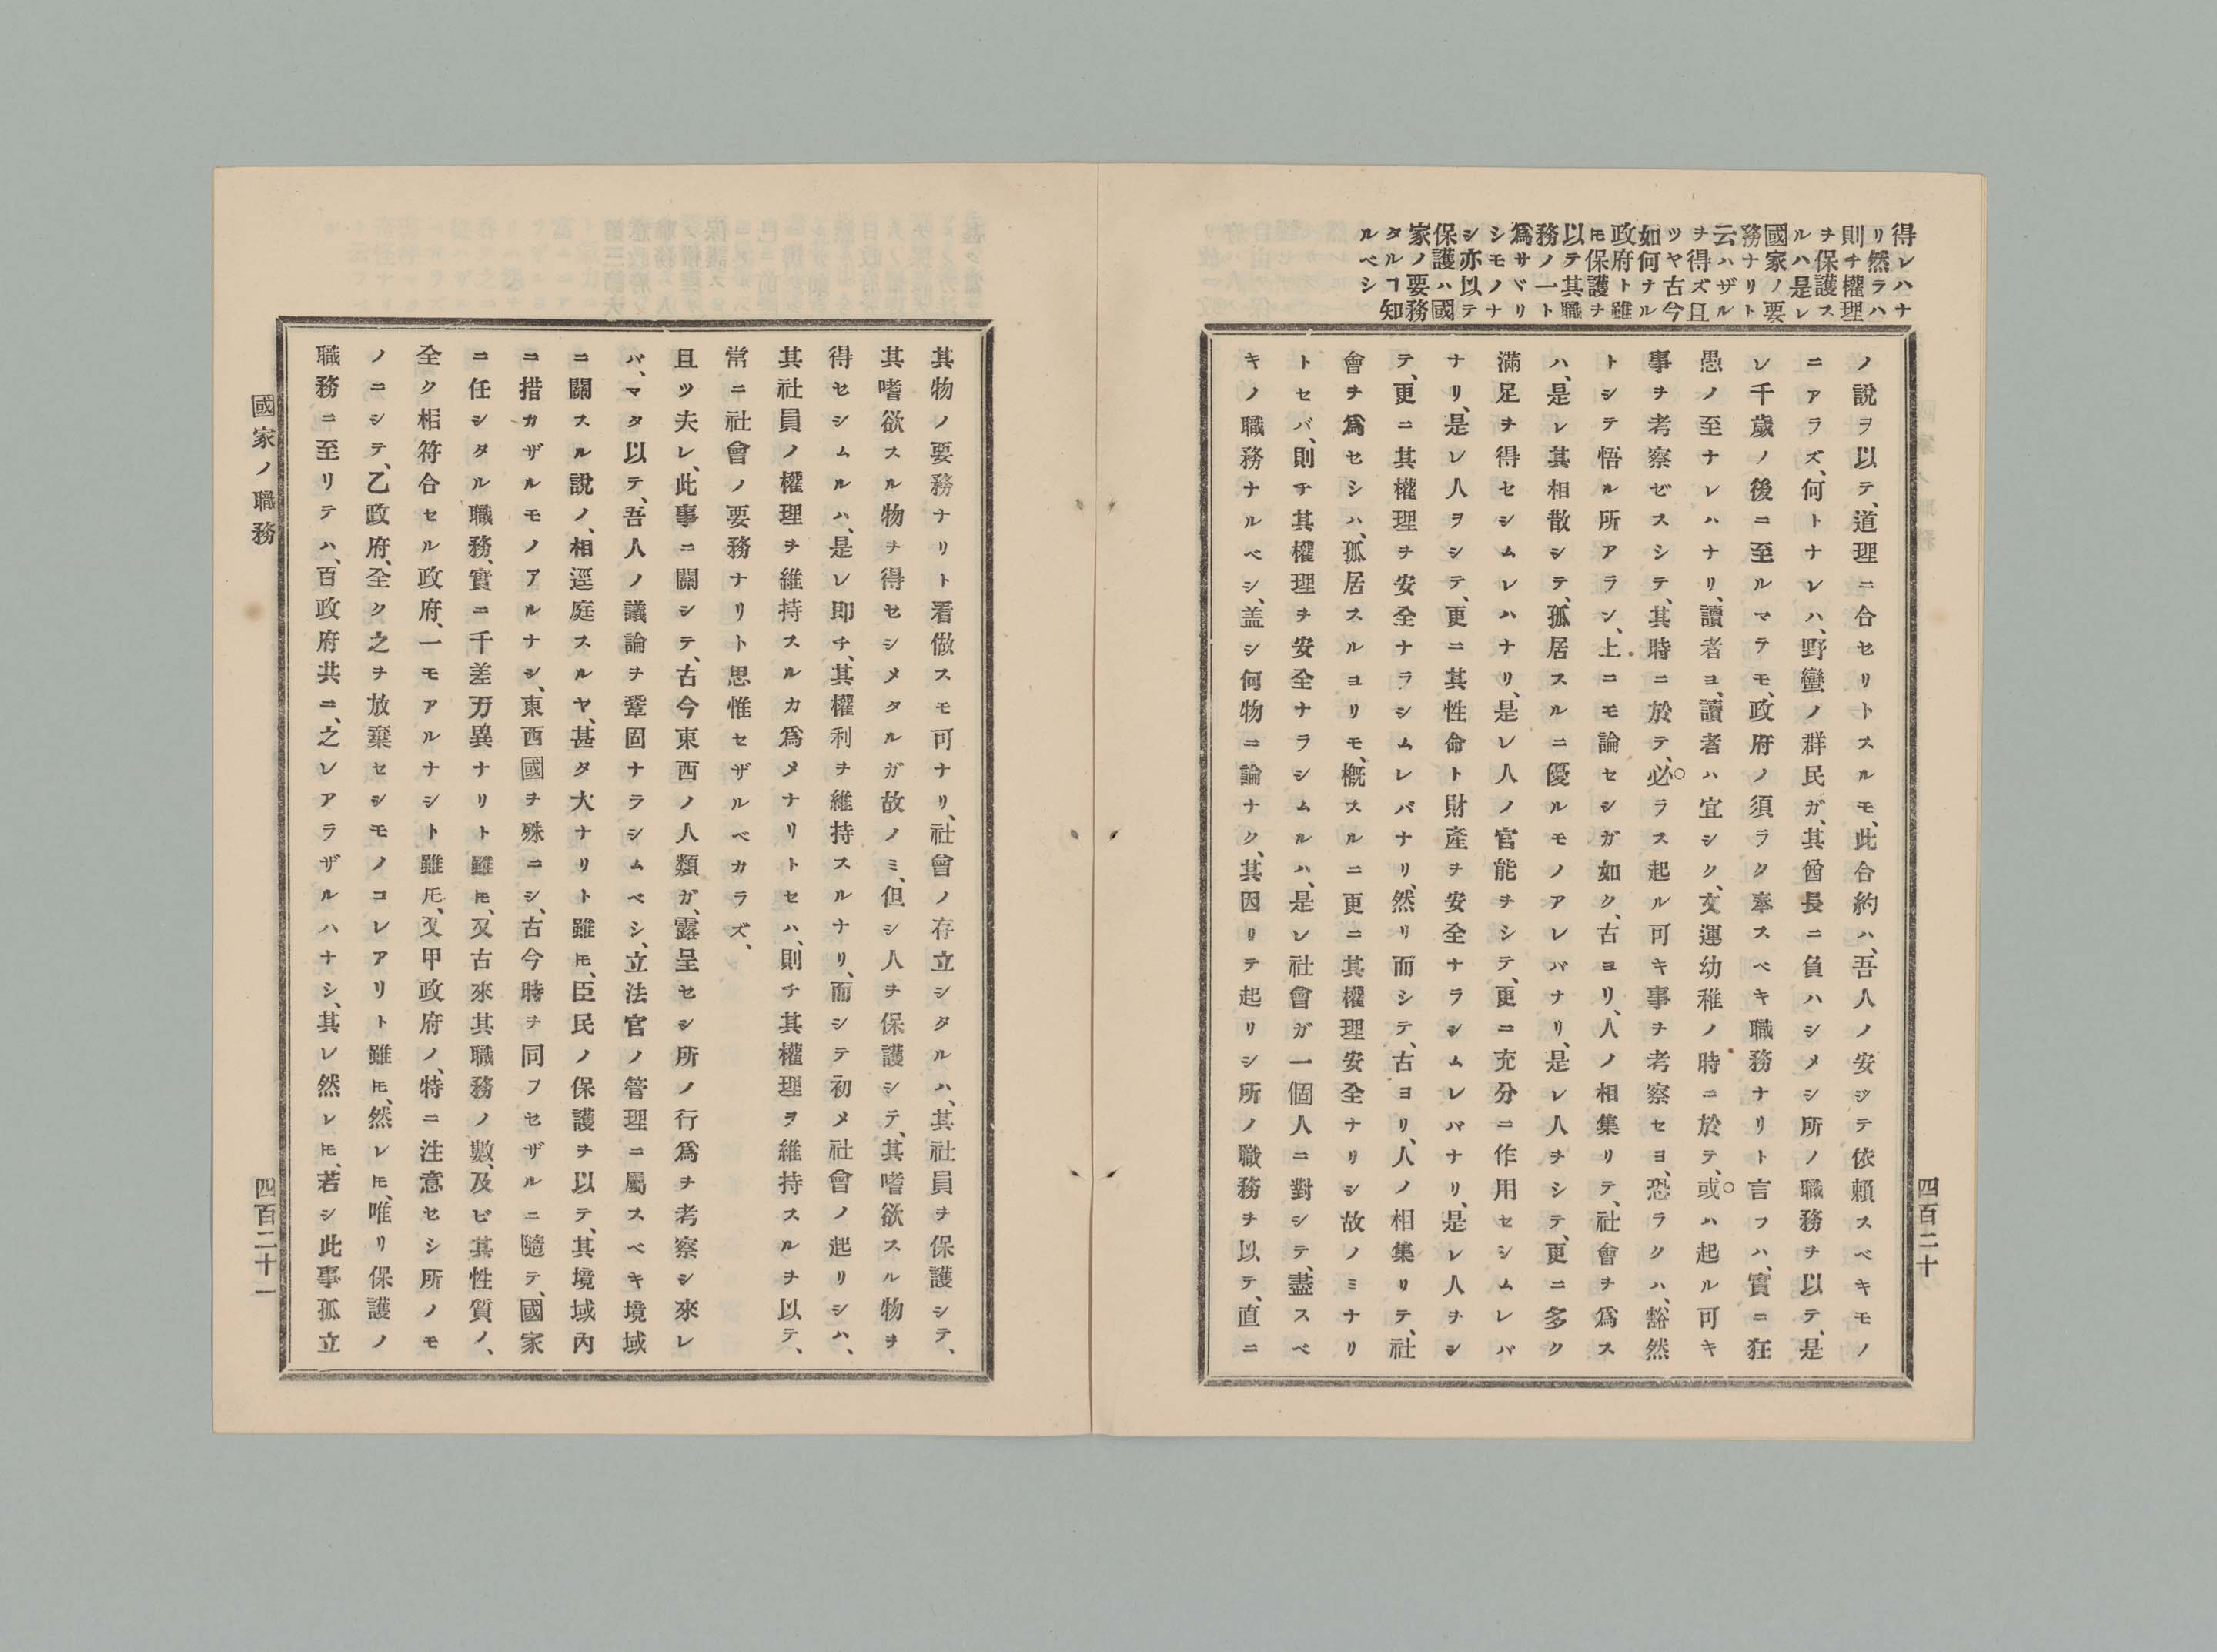 得レハナ
リ然ラハ
則チ權理
ヲ保護ス
ルハ是レ
國家ノ要
務ナリト
云ハザル
ヲ得ズ且
ツヤ古今
如何ナル
政府ト雖
𪜈保護ヲ
以テ其職
務ノ一ト
爲サヾリ
シモノナ
シ亦以テ
保護ハ國
家ノ要務
タルヿ知
ルベシ
ノ說ヲ以テ、道理ニ合セリトスルモ、此合約ハ、吾人ノ安ジテ依賴スベキモノ
ニアラズ、何トナレハ、野蠻ノ群民ガ、其酋長ニ負ハシメシ所ノ職務ヲ以テ、是
レ千歲ノ後ニ至ルマテモ、政府ノ須ラク奉スベキ職務ナリト言フハ、實ニ狂
愚ノ至ナレハナリ、讀者ヨ、讀者ハ宜シク、文運幼稚ノ時ニ於テ、或ハ起ル可キ
事ヲ考察ゼスシテ、其時ニ於テ、必ラス起ル可キ事ヲ考察セヨ、恐ラクハ、豁然
トシテ悟ル所アラン、上ニモ論セシガ如ク、古ヨリ、人ノ相集リテ、社會ヲ爲ス
ハ、是レ其相散シテ、孤居スルニ優ルモノアレバナリ、是レ人ヲシテ、更ニ多ク
滿足ヲ得セシムレハナリ、是レ人ノ官能ヲシテ、更ニ充分ニ作用セシムレバ
ナリ、是レ人ヲシテ、更ニ其性命ト財產ヲ安全ナラシムレバナリ、是レ人ヲシ
テ、更ニ其權理ヲ安全ナラシムレバナリ、然リ而シテ、古ヨリ、人ノ相集リテ、社
會ヲ爲セシハ、孤居スルヨリモ、槪スルニ更ニ其權理安全ナリシ故ノミナリ
トセバ、則チ其權理ヲ安全ナラシムルハ、是レ社會ガ一個人ニ對シテ、盡スベ
キノ職務ナルベシ、盖シ何物ニ論ナク、其因リテ起リシ所ノ職務ヲ以テ、直ニ
四百二十
其物ノ要務ナリト看做スモ可ナリ、社會ノ存立シタルハ、其社員ヲ保護シテ、
其嗜欲スル物ヲ得セシメタルガ故ノミ、但シ人ヲ保護シテ、其嗜欲スル物ヲ
得セシムルハ、是レ即チ、其權利ヲ維持スルナリ、而シテ初メ社會ノ起リシハ、
其社員ノ權理ヲ維持スルカ爲メナリトセハ、則チ其權理ヲ維持スルヲ以テ、
常ニ社會ノ要務ナリト思惟セザルベカラズ、
且ツ夫レ、此事ニ關シテ、古今東西ノ人類ガ、露呈セシ所ノ行爲ヲ考察シ來レ
バ、マタ以テ、吾人ノ議論ヲ鞏固ナラシムベシ、立法官ノ管理ニ屬スベキ境域
ニ關スル說ノ、相逕庭スルヤ、甚タ大ナリト雖𪜈、臣民ノ保護ヲ以テ、其境域內
ニ措カザルモノアルナシ、東西國ヲ殊ニシ、古今時ヲ同フセザルニ隨テ、國家
ニ任シタル職務、實ニ千差万異ナリト雖𪜈、又古來其職務ノ數、及ビ其性質ノ、
全ク相符合セル政府、一モアルナシト雖𪜈、又甲政府ノ、特ニ注意セシ所ノモ
ノニシテ、乙政府、全ク之ヲ放棄セシモノコレアリト雖𪜈、然レ𪜈、唯リ保護ノ
職務ニ至リテハ、百政府共ニ、之レアラザルハナシ、其レ然レ𪜈、若シ此事孤立
國家ノ職務
四百二十一